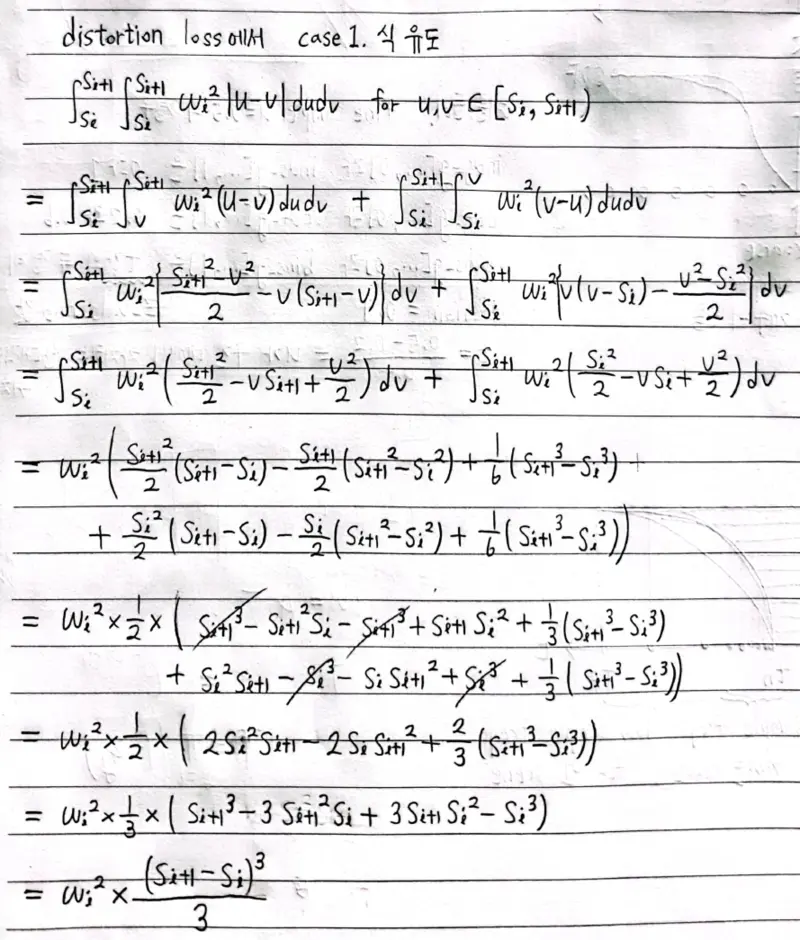 distortion loss에서 case 1. 식 유도
∫_{Si}^{Si+1} ∫_{Si}^{Si+1} wi²|u-v|dudv for u,v ∈ [Si, Si+1)
= ∫_{Si}^{Si+1} ∫_{v}^{Si+1} wi²(u-v)dudv + ∫_{Si}^{Si+1} ∫_{Si}^{v} wi²(v-u)dudv
= ∫_{Si}^{Si+1} wi²{(Si+1²-v²)/2 - v(Si+1-v)}dv + ∫_{Si}^{Si+1} wi²{v(v-Si) - (v²-Si²)/2}dv
= ∫_{Si}^{Si+1} wi²(Si+1²/2 - vSi+1 + v²/2)dv + ∫_{Si}^{Si+1} wi²(Si²/2 - vSi + v²/2)dv
= wi²(Si+1²/2 (Si+1-Si) - Si+1/2 (Si+1²-Si²) + 1/6 (Si+1³-Si³) +
+ Si²/2 (Si+1-Si) - Si/2 (Si+1²-Si²) + 1/6 (Si+1³-Si³))
= wi² × 1/2 × (Si+1³ - Si+1²Si - Si+1³ + Si+1Si² + 1/3 (Si+1³-Si³)
+ Si²Si+1 - Si³ - SiSi+1² + Si³ + 1/3 (Si+1³-Si³))
= wi² × 1/2 × (2Si²Si+1 - 2SiSi+1² + 2/3 (Si+1³-Si³))
= wi² × 1/3 × (Si+1³ - 3Si+1²Si + 3Si+1Si² - Si³)
= wi² × (Si+1-Si)³/3